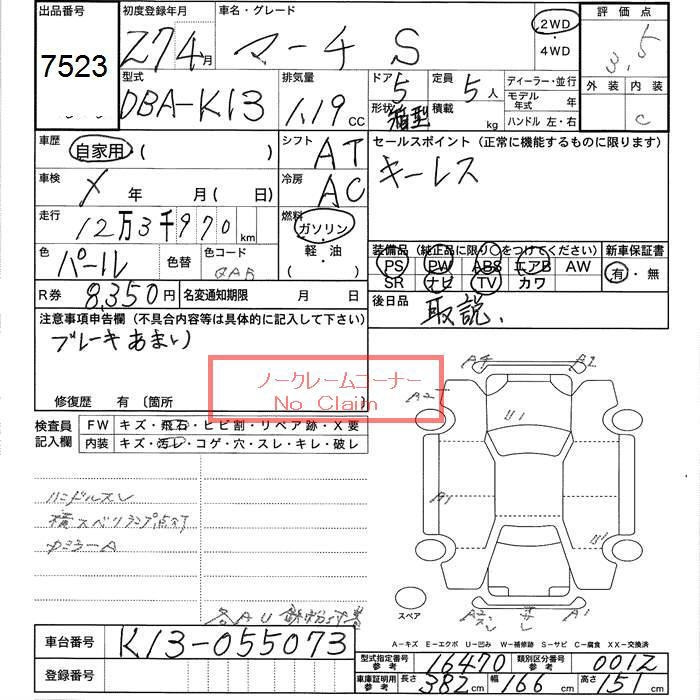 出品番号
7523
初度登録年月
27 4月
車名・グレード
マーチ S
2WD
・
4WD
評価点
3.5
型式
DBA-K13
排気量
1.19 CC
ドア 5
形状 箱型
定員 5人
積載 kg
ディーラー・並行
モデル年式 年
ハンドル 左・右
外装 内装
C
車歴
自家用 ( )
シフト
AT
セールスポイント (正常に機能するものに限ります)
キーレス
車検
X 年 月 ( 日)
冷房
AC
走行
12万3千970 km
燃料
ガソリン
軽・油
( )
色
パール
色替
色コード
QAB
装備品 (純正品に限り○をつけてください)
PS PW ABS エアB AW
SR ナビ TV カワ
新車保証書
有・無
R券
8,350円
名変通知期限 月 日
後日品
取説.
注意事項申告欄 (不具合内容等は具体的に記入して下さい)
ブレーキあまい
修復歴 有 (箇所 )
ノークレームコーナー
No Claim
検査員記入欄
FW キズ・飛石・ヒビ割・リペア跡・X要
内装 キズ・汚レ・コゲ・穴・スレ・キレ・破レ
ハンドルスレ
横スベリランプ点灯
カミラーA
各AU 鉄粉付着
A4 A2
A2
U1
A1
U1
スペア
A2
A1
A-キズ E-エクボ U-凹み W-補修跡 S-サビ C-腐食 XX-交換済
車台番号
K13-055073
登録番号
型式指定番号 参考
16470
類別区分番号 参考
0012
車庫証明用 参考
長さ 382 cm
幅 166 cm
高さ 151 cm